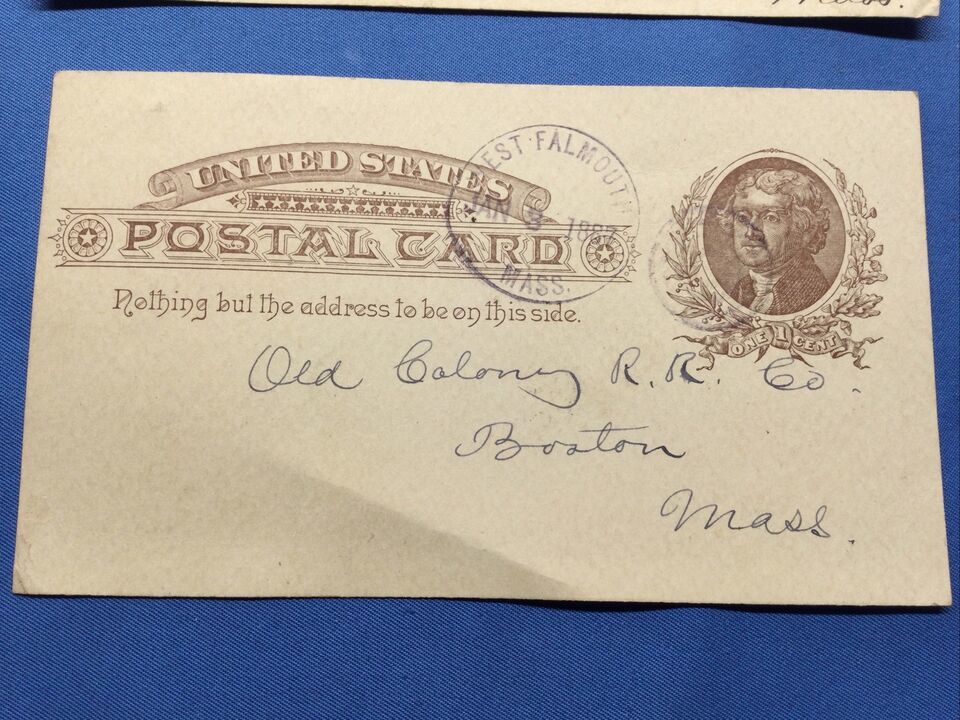 Mass.
UNITED STATES
POSTAL CARD
Nothing but the address to be on this side.
WEST FALMOUTH
JAN 3 1887
MASS.
ONE 1 CENT
Old Colony R. R. Co.
Boston
Mass.